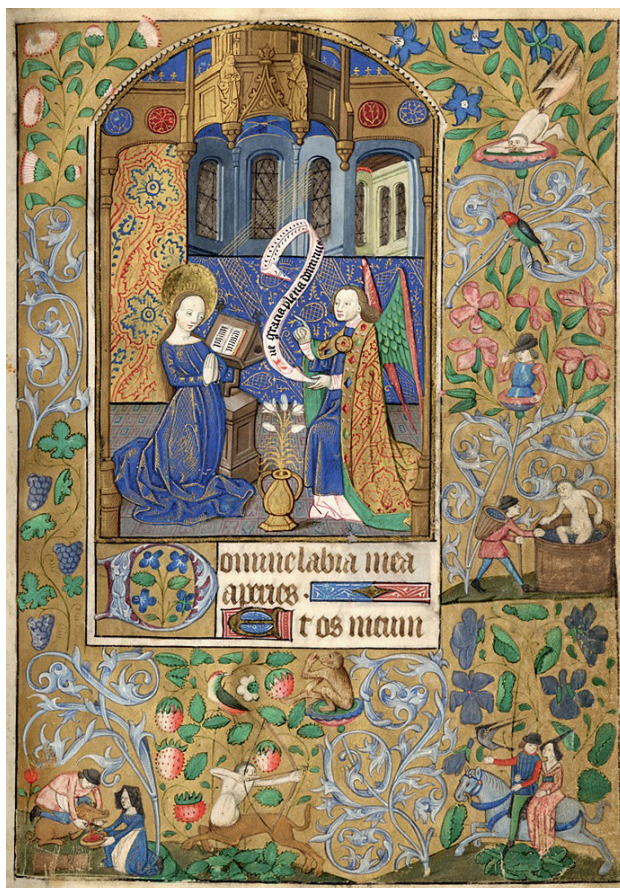 Aue gracia plena dominus
Domine labia mea
aperies.
Et os meum